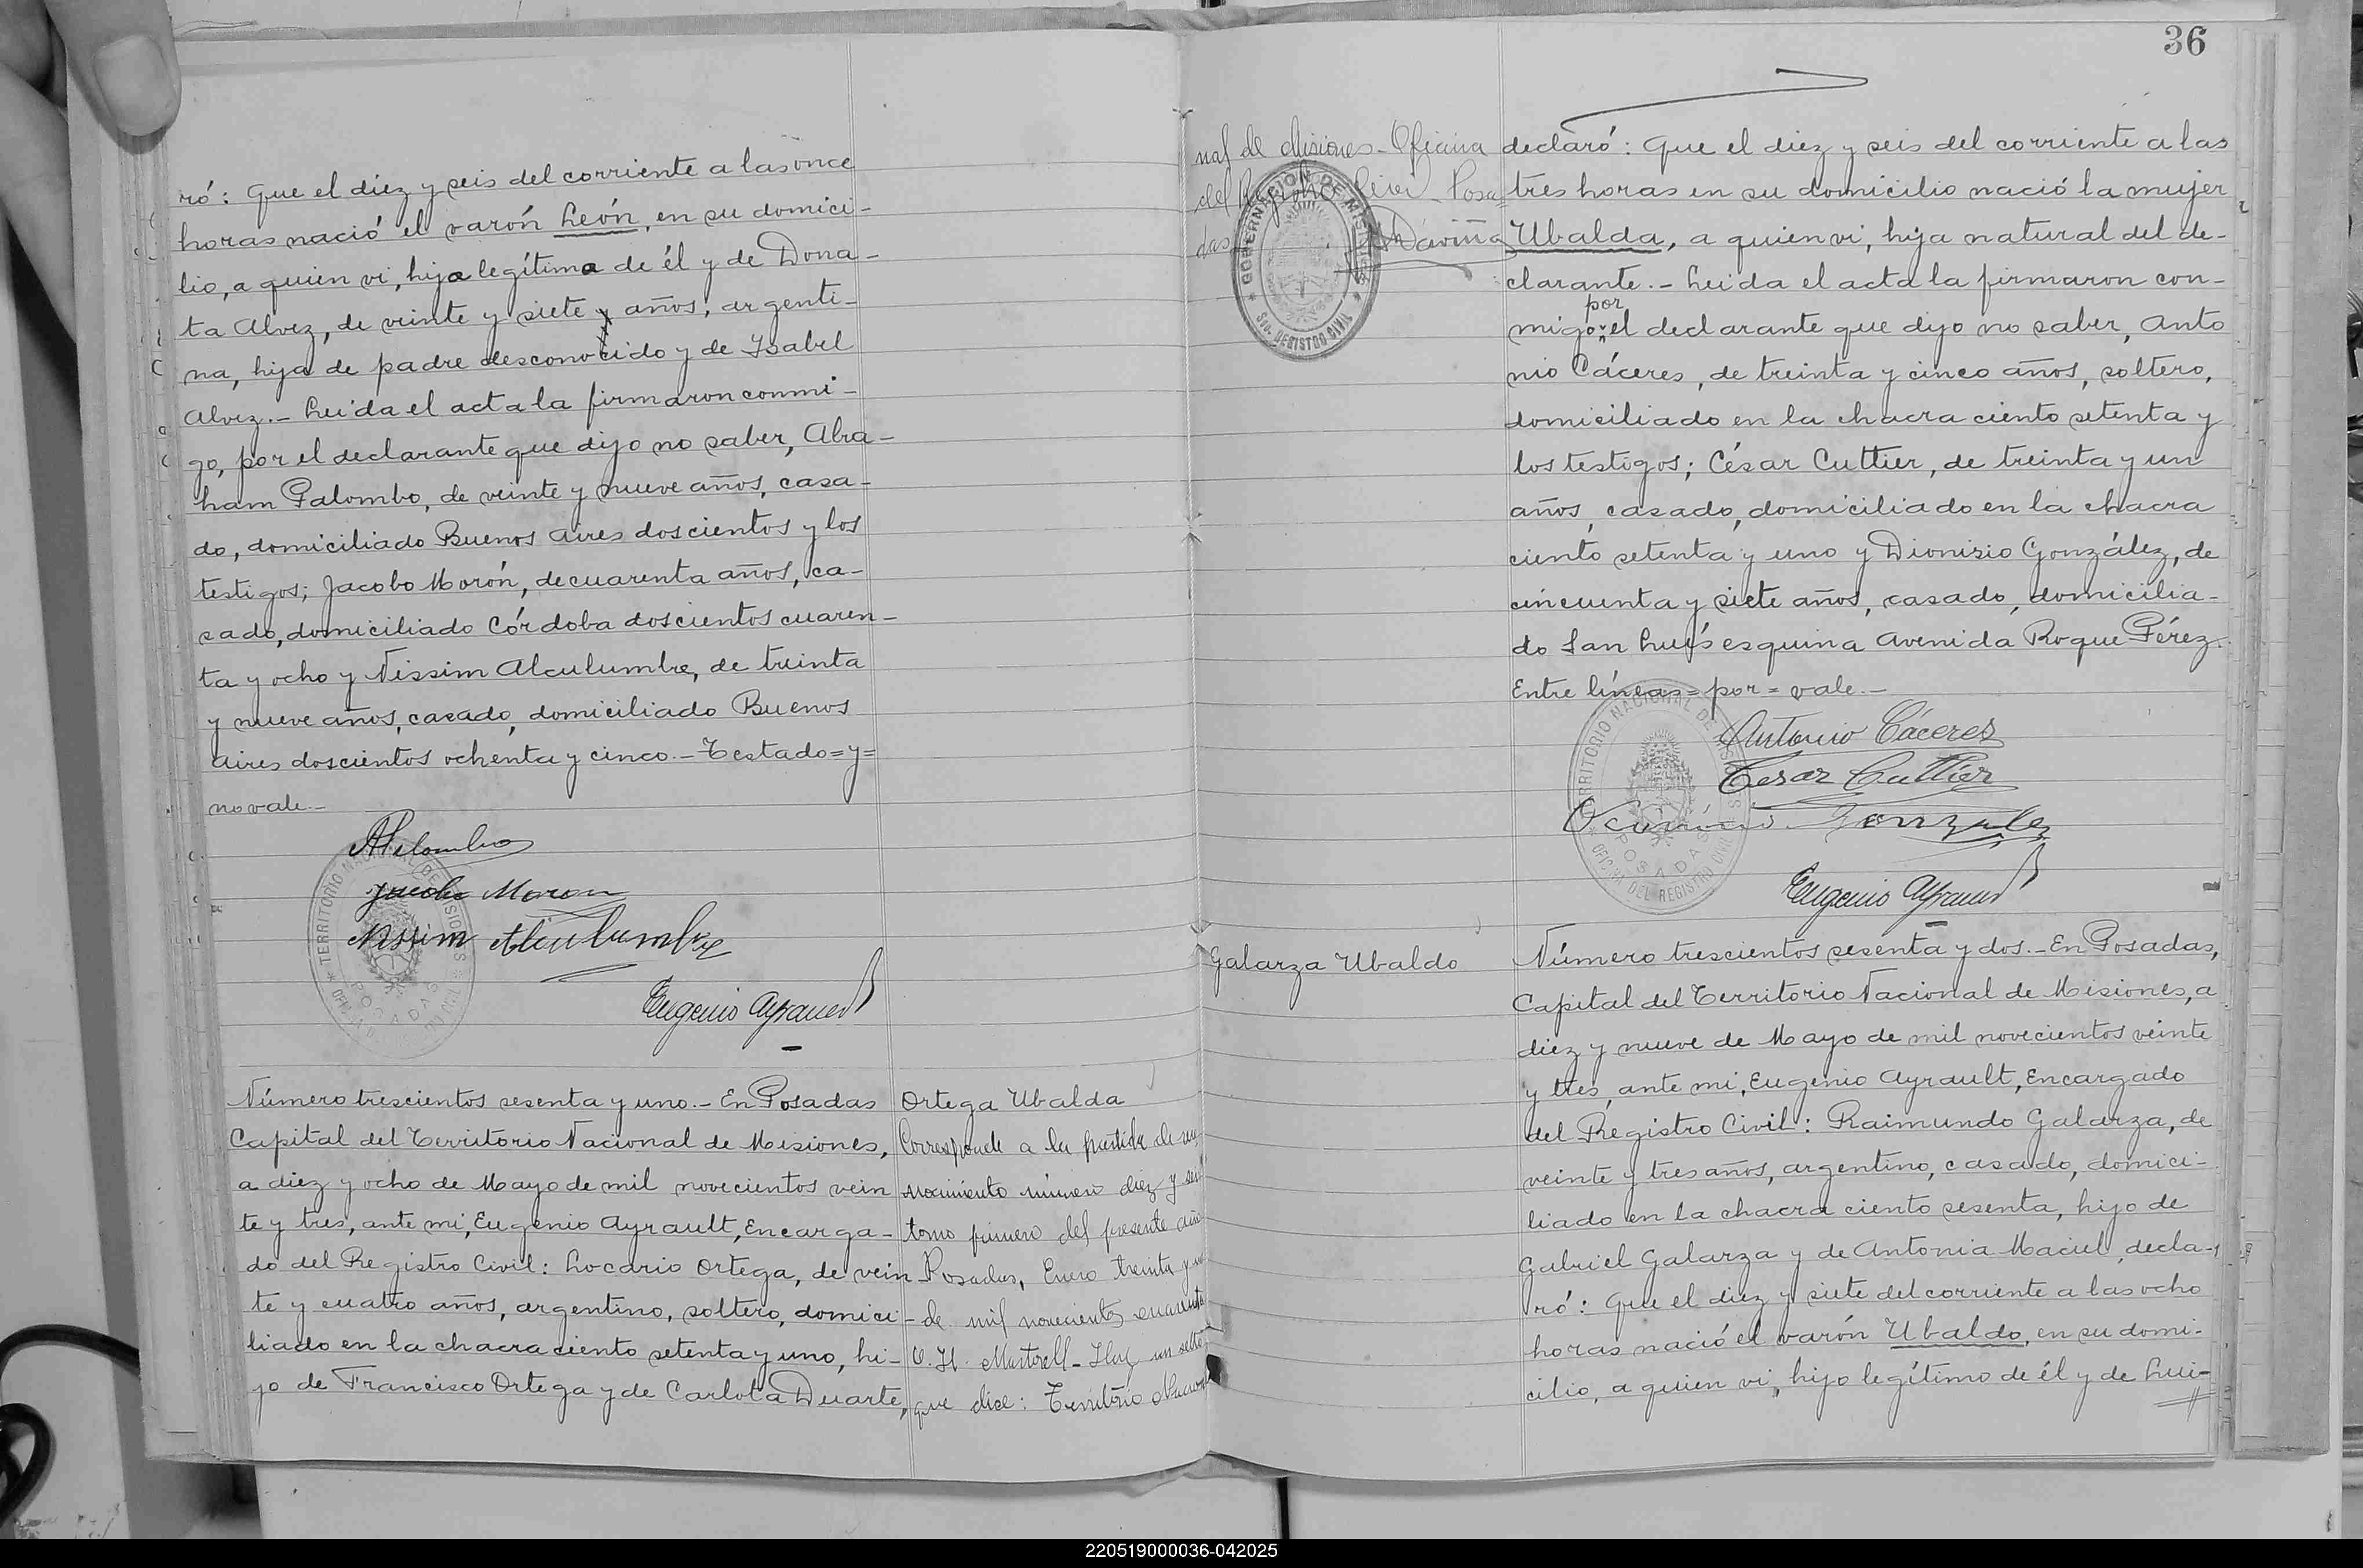 ró: Que el diez y seis del corriente a las once
horas nació el varón León, en su domici-
lio, a quien vi, hija legítima de él y de Dona-
ta Alvez, de veinte y siete y años, argenti-
na, hija de padre desconocido y de Isabel
Alvez.- Leida el acta la firmaron conmi-
go, por el declarante que dijo no saber, Abra-
ham Palombo, de veinte y nueve años, casa-
do, domiciliado Buenos Aires doscientos y los
testigos; Jacobo Morón, de cuarenta años, ca-
sado, domiciliado Córdoba doscientos cuaren-
ta y ocho y Nissim Alculumbre, de treinta
y nueve años, casado, domiciliado Buenos
Aires doscientos ochenta y cinco.- Testado=y=
no vale.-
Jacobo Moron
Nissim Alculumbre
Eugenio Ayrault
TERRITORIO NACIONAL DE MISIONES
POSADAS
Número trescientos sesenta y uno.- En Posadas
Capital del Territorio Nacional de Misiones,
a diez y ocho de Mayo de mil novecientos vein
te y tres, ante mi, Eugenio Ayrault, Encarga-
do del Registro Civil: Locario Ortega, de vein
te y cuatro años, argentino, soltero, domici-
liado en la chacra ciento setenta y uno, hi-
jo de Francisco Ortega y de Carlota Duarte,
Ortega Ubalda
Corresponde a la partida de na
cimiento número diez y seis
tomo primero del presente año
Posadas, Enero treinta y un
de mil novecientos cuarenta
Martorell - Hay un sello
que dice: Territorio Nacio
36
nal de Misiones - Oficina
del Registro Civil - Posa
das
GOBERNACION DE MISIONES
REGISTRO CIVIL
declaró: Que el diez y seis del corriente a las
tres horas en su domicilio nació la mujer
Ubalda, a quien vi, hija natural del de-
clarante.- Leida el acta la firmaron con-
por
migo, el declarante que dijo no saber, Anto
nio Cáceres, de treinta y cinco años, soltero,
domiciliado en la chacra ciento setenta y
los testigos; César Cuttier, de treinta y un
años, casado, domiciliado en la chacra
ciento setenta y uno y Dionisio González, de
cincuenta y siete años, casado, domicilia-
do San Luis esquina Avenida Roque Pérez.
Entre líneas=por=vale.-
Antonio Cáceres
Cesar Cuttier
Gonzalez
Eugenio Ayrault
TERRITORIO NACIONAL DE MISIONES
POSADAS
OFICINA DEL REGISTRO CIVIL
Galarza Ubaldo
Número trescientos sesenta y dos.- En Posadas,
Capital del Territorio Nacional de Misiones, a
diez y nueve de Mayo de mil novecientos veinte
y tres, ante mi, Eugenio Ayrault, Encargado
del Registro Civil: Raimundo Galarza, de
veinte y tres años, argentino, casado, domici-
liado en la chacra ciento sesenta, hijo de
Gabriel Galarza y de Antonia Maciel, decla-
ró: Que el diez y siete del corriente a las ocho
horas nació el varón Ubaldo, en su domi-
cilio, a quien vi, hijo legítimo de él y de Lui-
220519000036-042025